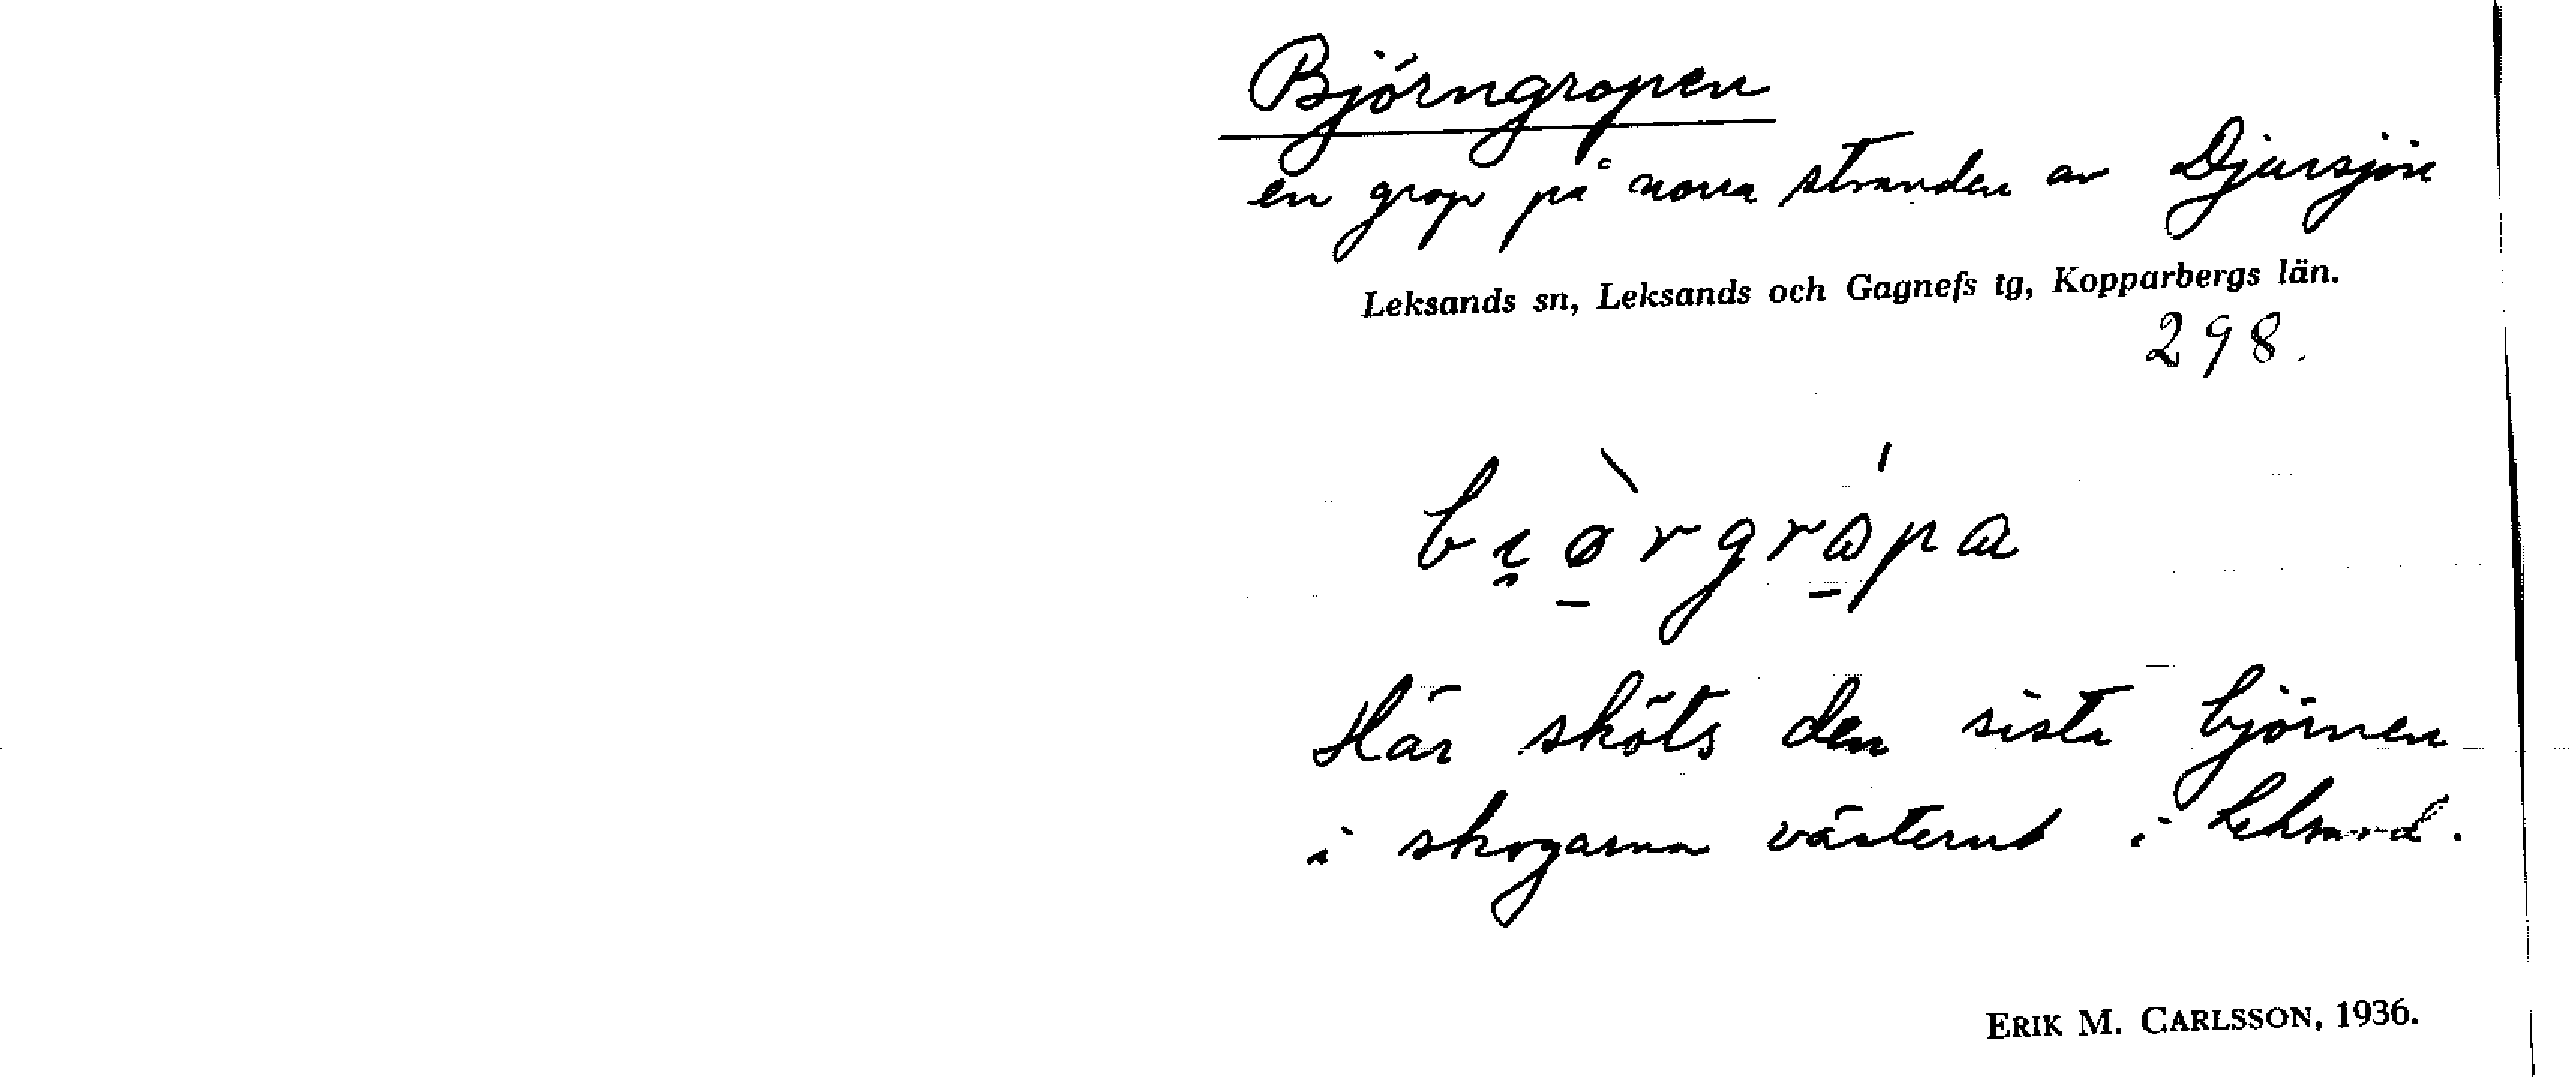 Björngropen
en grop på norra stranden av Djursjön
Leksands sn, Leksands och Gagnefs tg, Kopparbergs län.
298.
Här sköts den sista björnen
i skogarna västerut i Leksand.
ERIK M. CARLSSON, 1936.